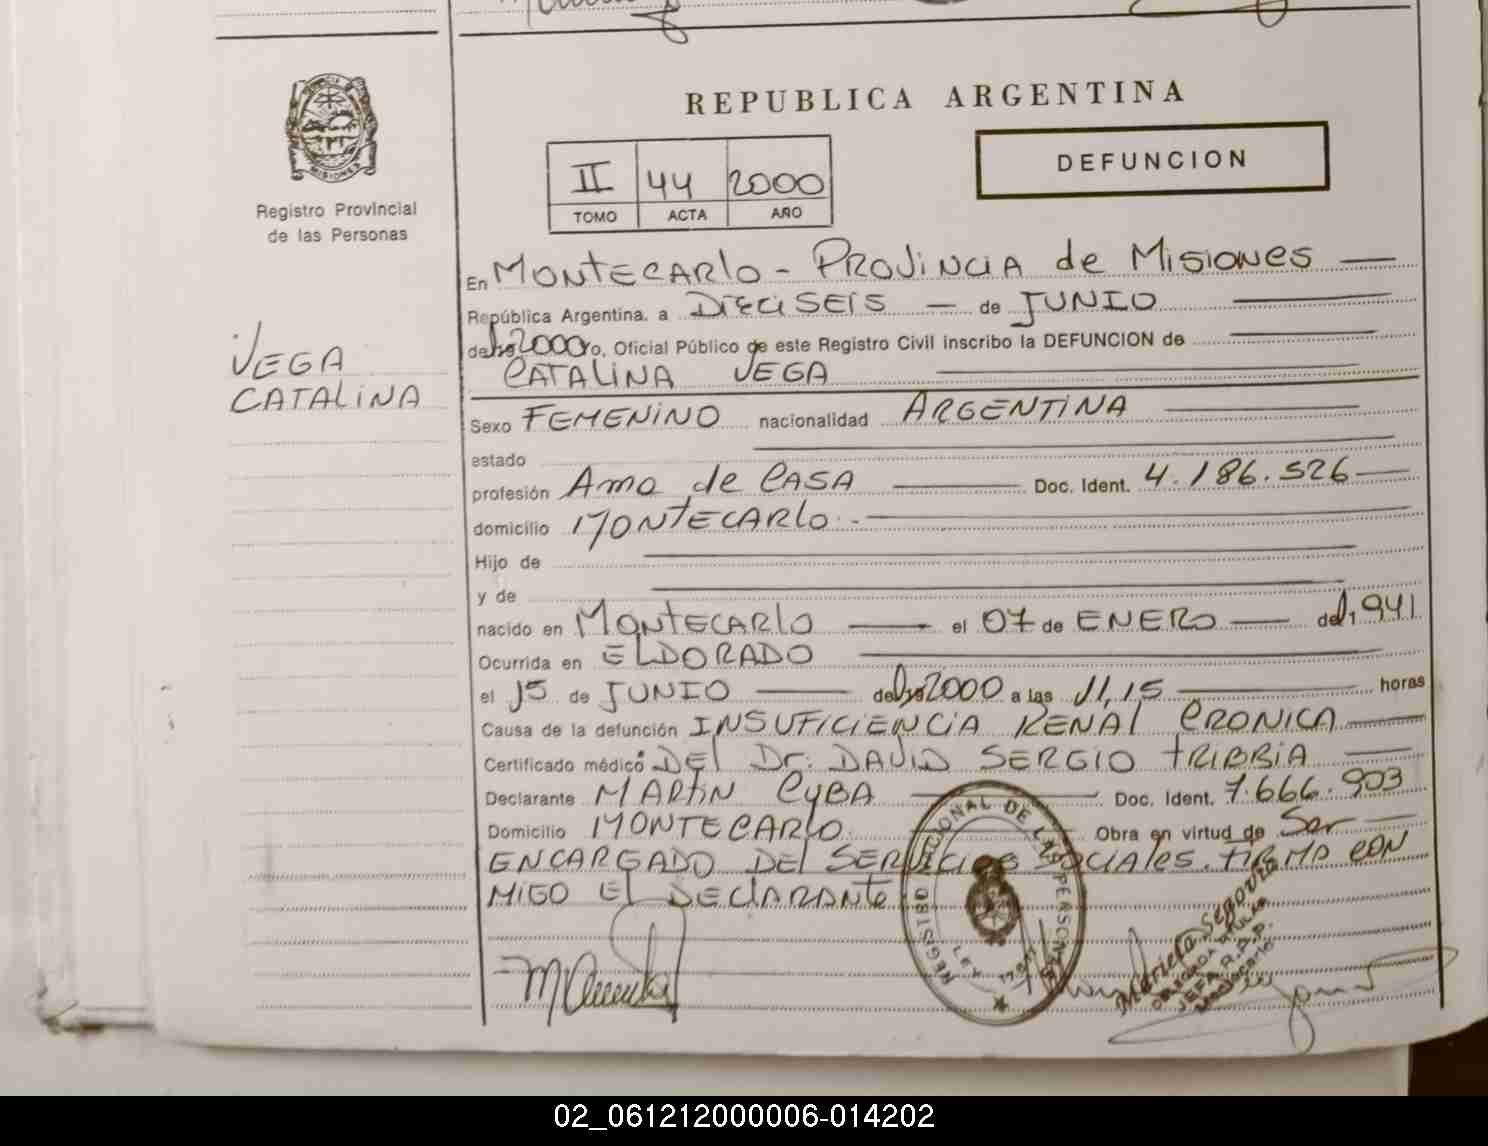 REPUBLICA ARGENTINA
MISIONES
Registro Provincial
de las Personas
II 44 2000
TOMO ACTA AÑO
DEFUNCION
VEGA
CATALINA
En MONTECARLO - PROVINCIA de MISIONES
República Argentina, a DIECISEIS de JUNIO
del 2000 yo, Oficial Público de este Registro Civil inscribo la DEFUNCION de
CATALINA VEGA
Sexo FEMENINO nacionalidad ARGENTINA
estado
profesión Ama de CASA Doc. Ident. 4.186.526
domicilio MONTECARLO.-
Hijo de
y de
nacido en MONTECARLO el 07 de ENERO del 1941
Ocurrida en ELDORADO
el 15 de JUNIO del 2000 a las 11,15 horas
Causa de la defunción INSUFICIENCIA RENAL CRONICA
Certificado médico DEL Dr. DAVID SERGIO TRIBBIA
Declarante MARTIN CYBA Doc. Ident. 7.666.903
Domicilio MONTECARLO Obra en virtud de Ser
ENCARGADO DEL SERVICIOS SOCIALES. FIRMA CON
MIGO EL DECLARANTE
REGISTRO NACIONAL DE LAS PERSONAS
LEY
Mariela Segovia
DELEGADA TITULAR
JEFA R.P.P.
Montecarlo
02_061212000006-014202